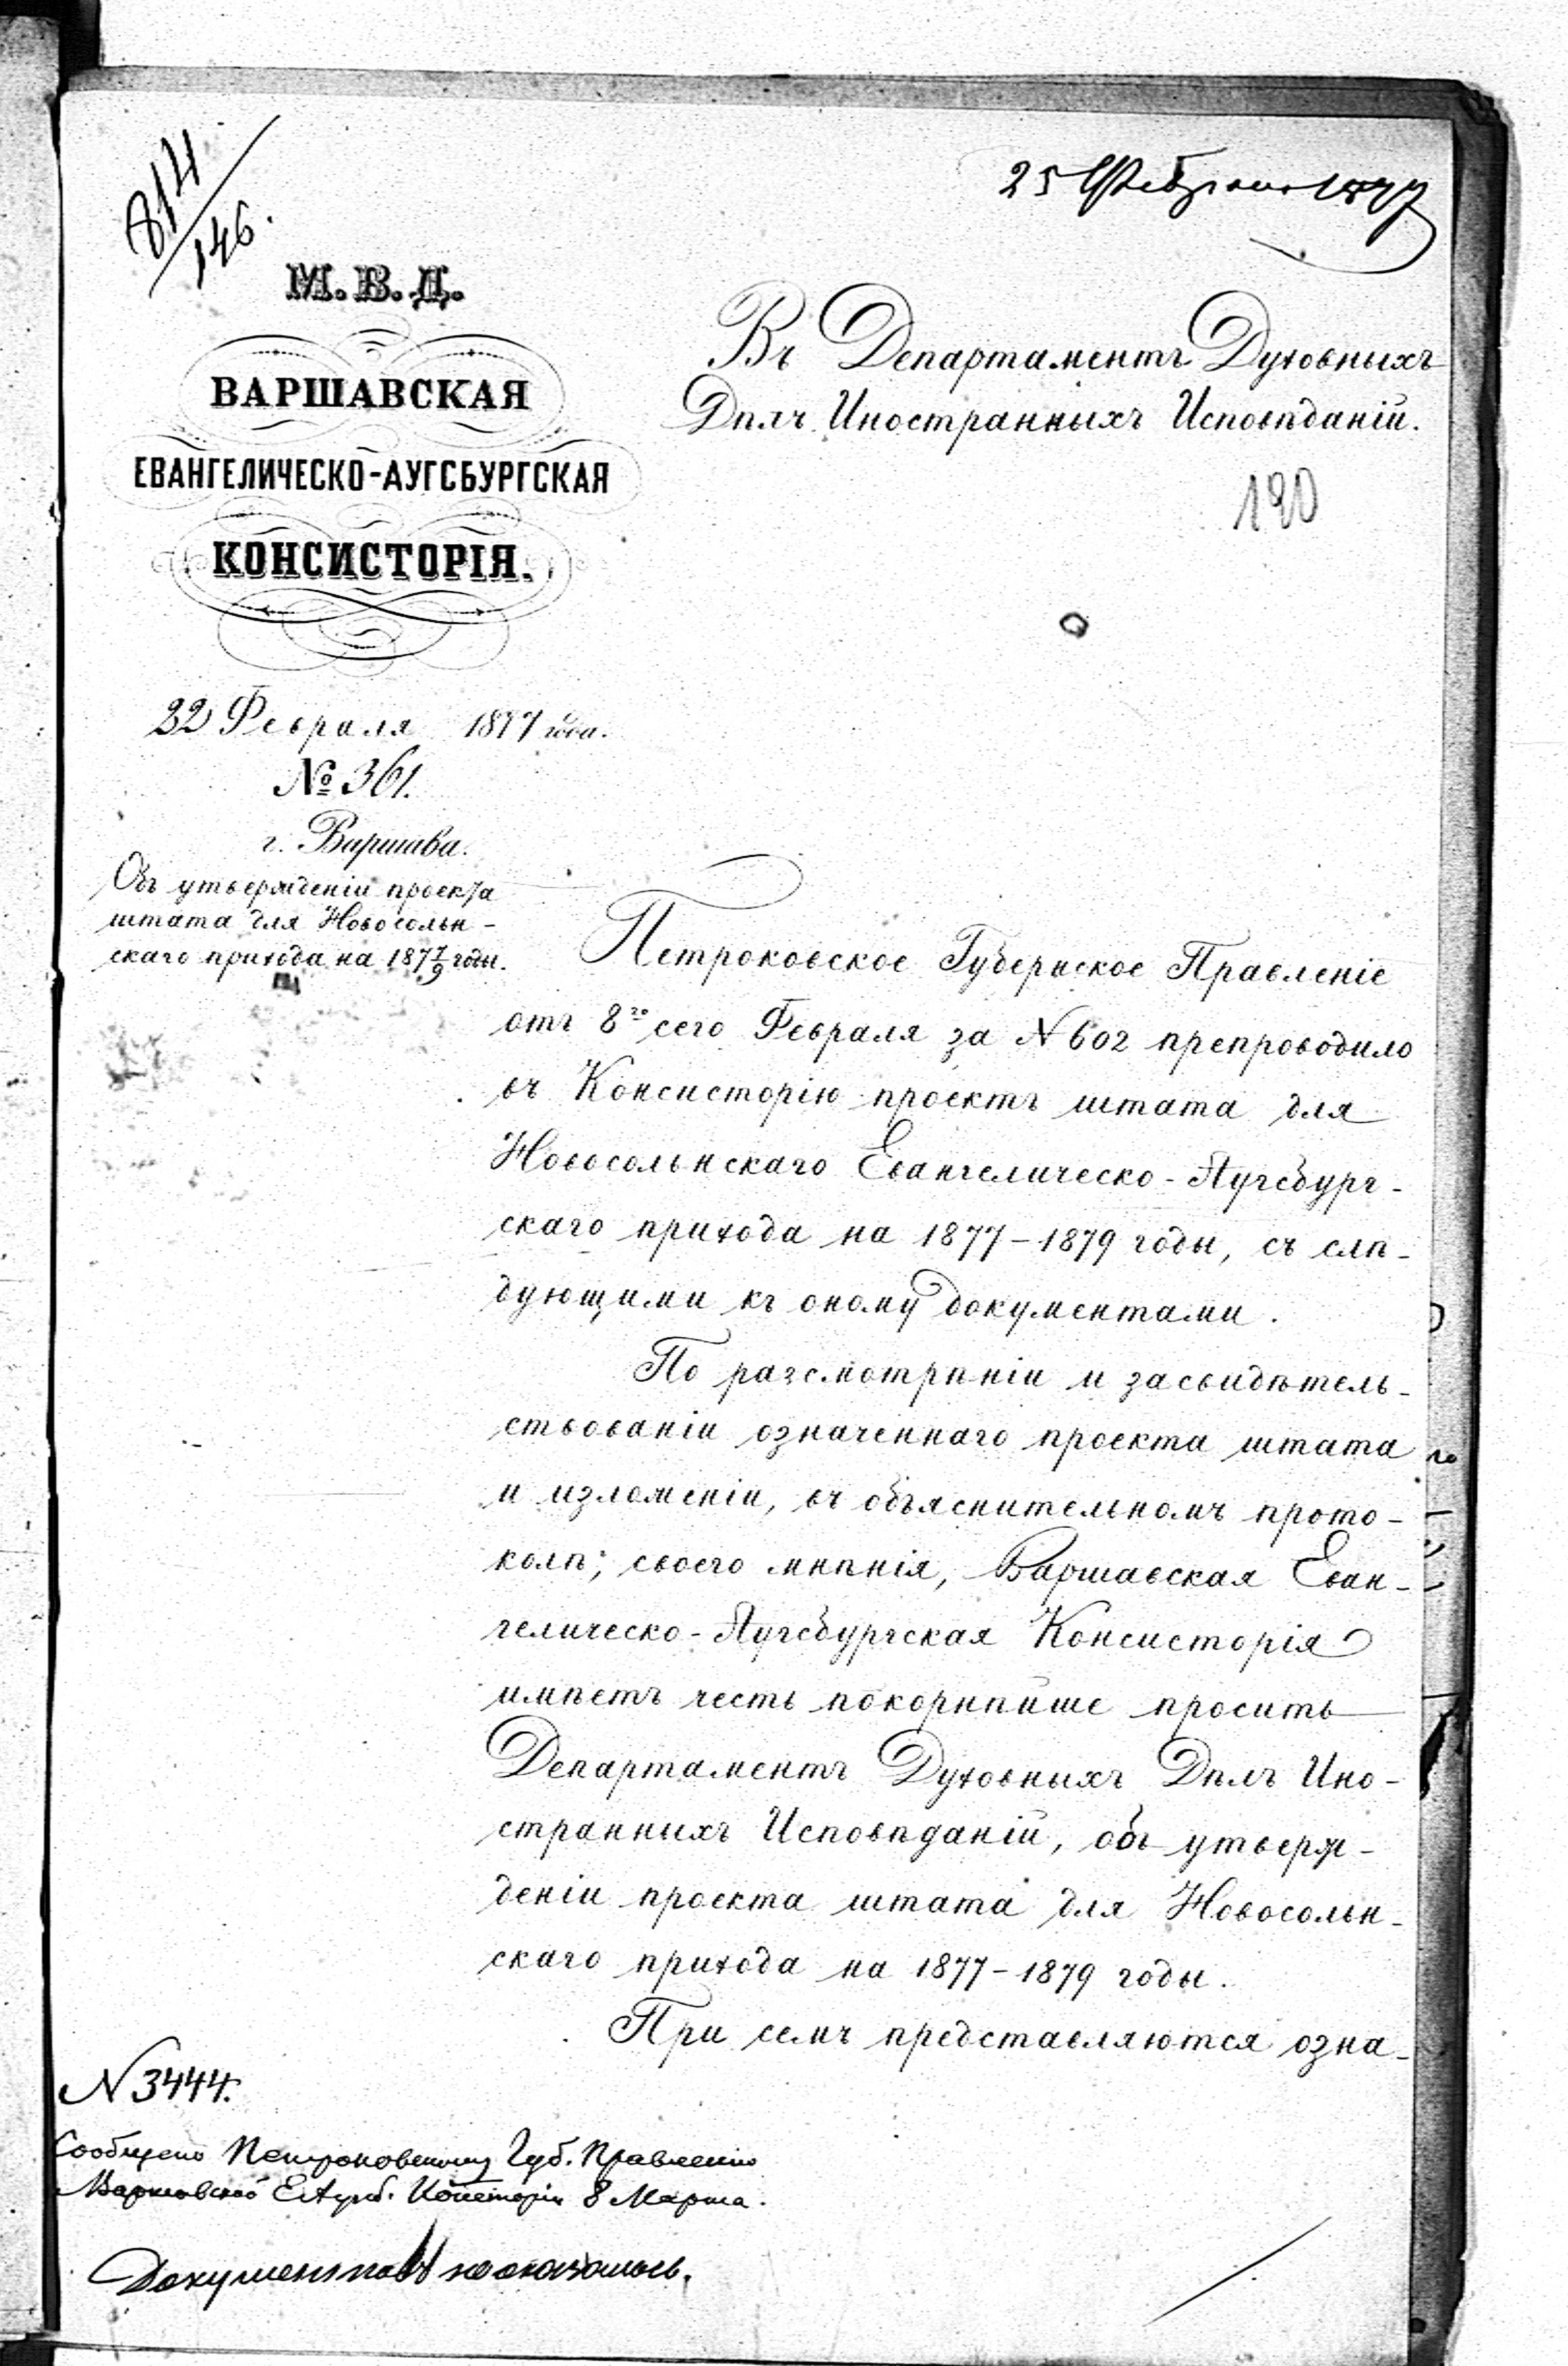 814/146.
25 Февраля 1877
М. В. Д.
ВАРШАВСКАЯ
ЕВАНГЕЛИЧЕСКО-АУГСБУРГСКАЯ
КОНСИСТОРІЯ.
Въ Департаментъ Духовныхъ
Дѣлъ Иностранныхъ Исповѣданій.
120
22 Февраля 1877 года.
№ 361.
г. Варшава.
Объ утвержденіи проекта
штата для Новосольн-
скаго прихода на 187 7/9 годы.
Петроковское Губернское Правленіе
отъ 8го сего Февраля за N 602 препроводило
въ Консисторію проектъ штата для
Новосольнскаго Евангелическо-Аугсбург-
скаго прихода на 1877-1879 годы, съ слѣ-
дующими къ оному документами.
По разсмотрѣніи и засвидѣтель-
ствованіи означеннаго проекта штата
и изложеніи, въ объяснительномъ прото-
колѣ, своего мнѣнія, Варшавская Еван-
гелическо-Аугсбургская Консисторія
имѣетъ честь покорнѣйше просить
Департаментъ Духовныхъ Дѣлъ Ино-
странныхъ Исповѣданій, объ утверж-
деніи проекта штата для Новосольн-
скаго прихода на 1877-1879 годы.
При семъ представляются озна-
N 3444.
Сообщено Петроковскому Губ. Правленію
Варшавской ЕАугсб. Консисторіи 8 Марта.
Документовъ не оказалось.